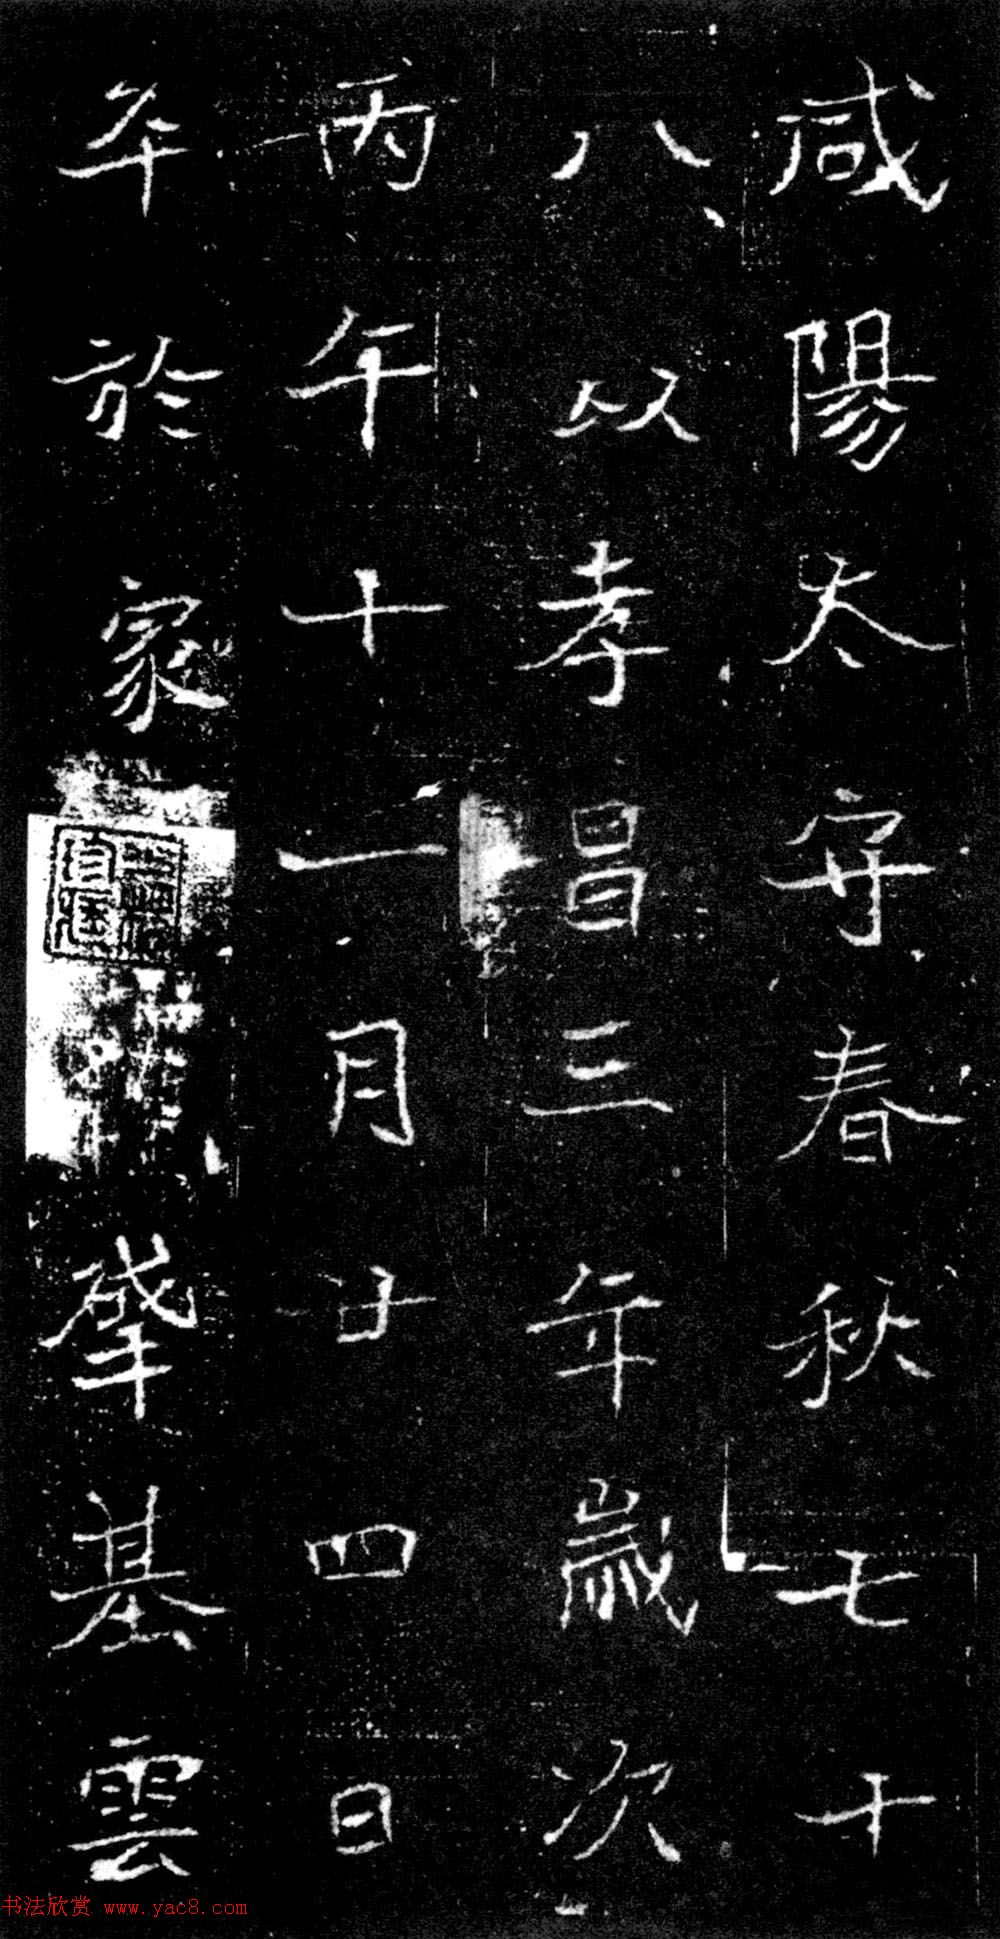 咸陽太守春秋七十
八以孝昌三年歲次
丙午十一月廿四日
卒於家肇基雲
书法欣赏 www.yac8.com